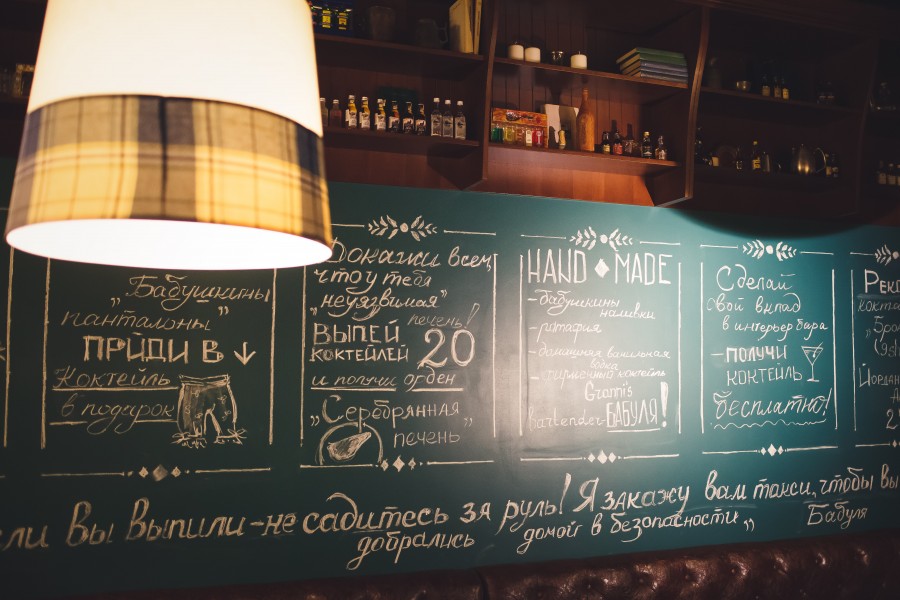 „Бабушкины
панталоны"
ПРИДИ В ↓
Коктейль
в подарок
Докажи всем,
что у тебя
„неуязвимая"
печень!
ВЫПЕЙ
КОКТЕЙЛЕЙ 20
и получи орден
„Серебрянная
печень"
HAND MADE
- бабушкины
наливки
- ратафия
- домашняя ванильная
водка
коктейль
Granny's
bartender БАБУЛЯ!
Сделай
свой вклад
в интерьер бара
- ПОЛУЧИ
КОКТЕЙЛЬ
бесплатно!
Вы выпили - не садитесь за руль! Я закажу вам такси, чтобы вы
добрались домой в безопасности"
Бабуля